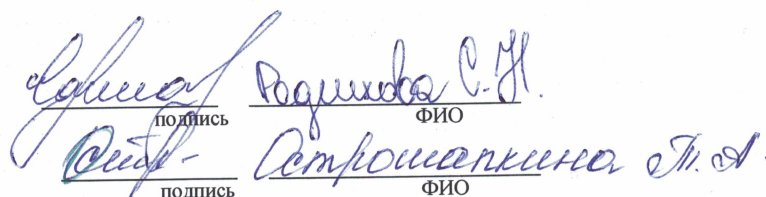 Родикова С.Н.
подпись ФИО
Остр- Острошапкина Т.А.
подпись ФИО